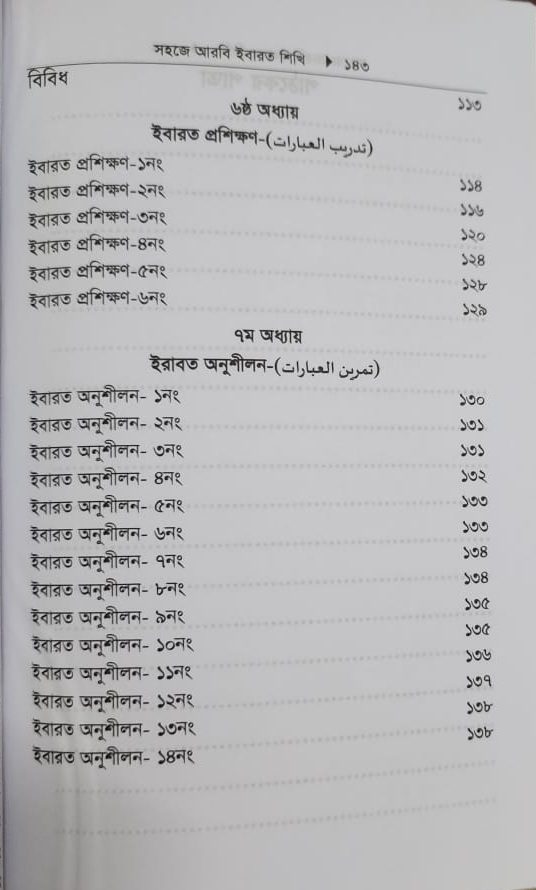 সহজে আরবি ইবারত শিখি ▶ ১৪৩
বিবিধ ১১৩
৬ষ্ঠ অধ্যায়
ইবারত প্রশিক্ষণ-(تدريب العبارات)
ইবারত প্রশিক্ষণ-১নং ১১৪
ইবারত প্রশিক্ষণ-২নং ১১৬
ইবারত প্রশিক্ষণ-৩নং ১২০
ইবারত প্রশিক্ষণ-৪নং ১২৪
ইবারত প্রশিক্ষণ-৫নং ১২৮
ইবারত প্রশিক্ষণ-৬নং ১২৯
৭ম অধ্যায়
ইরাবত অনুশীলন-(تمرين العبارات)
ইবারত অনুশীলন- ১নং ১৩০
ইবারত অনুশীলন- ২নং ১৩১
ইবারত অনুশীলন- ৩নং ১৩১
ইবারত অনুশীলন- ৪নং ১৩২
ইবারত অনুশীলন- ৫নং ১৩৩
ইবারত অনুশীলন- ৬নং ১৩৩
ইবারত অনুশীলন- ৭নং ১৩৪
ইবারত অনুশীলন- ৮নং ১৩৪
ইবারত অনুশীলন- ৯নং ১৩৫
ইবারত অনুশীলন- ১০নং ১৩৫
ইবারত অনুশীলন- ১১নং ১৩৬
ইবারত অনুশীলন- ১২নং ১৩৭
ইবারত অনুশীলন- ১৩নং ১৩৮
ইবারত অনুশীলন- ১৪নং ১৩৮